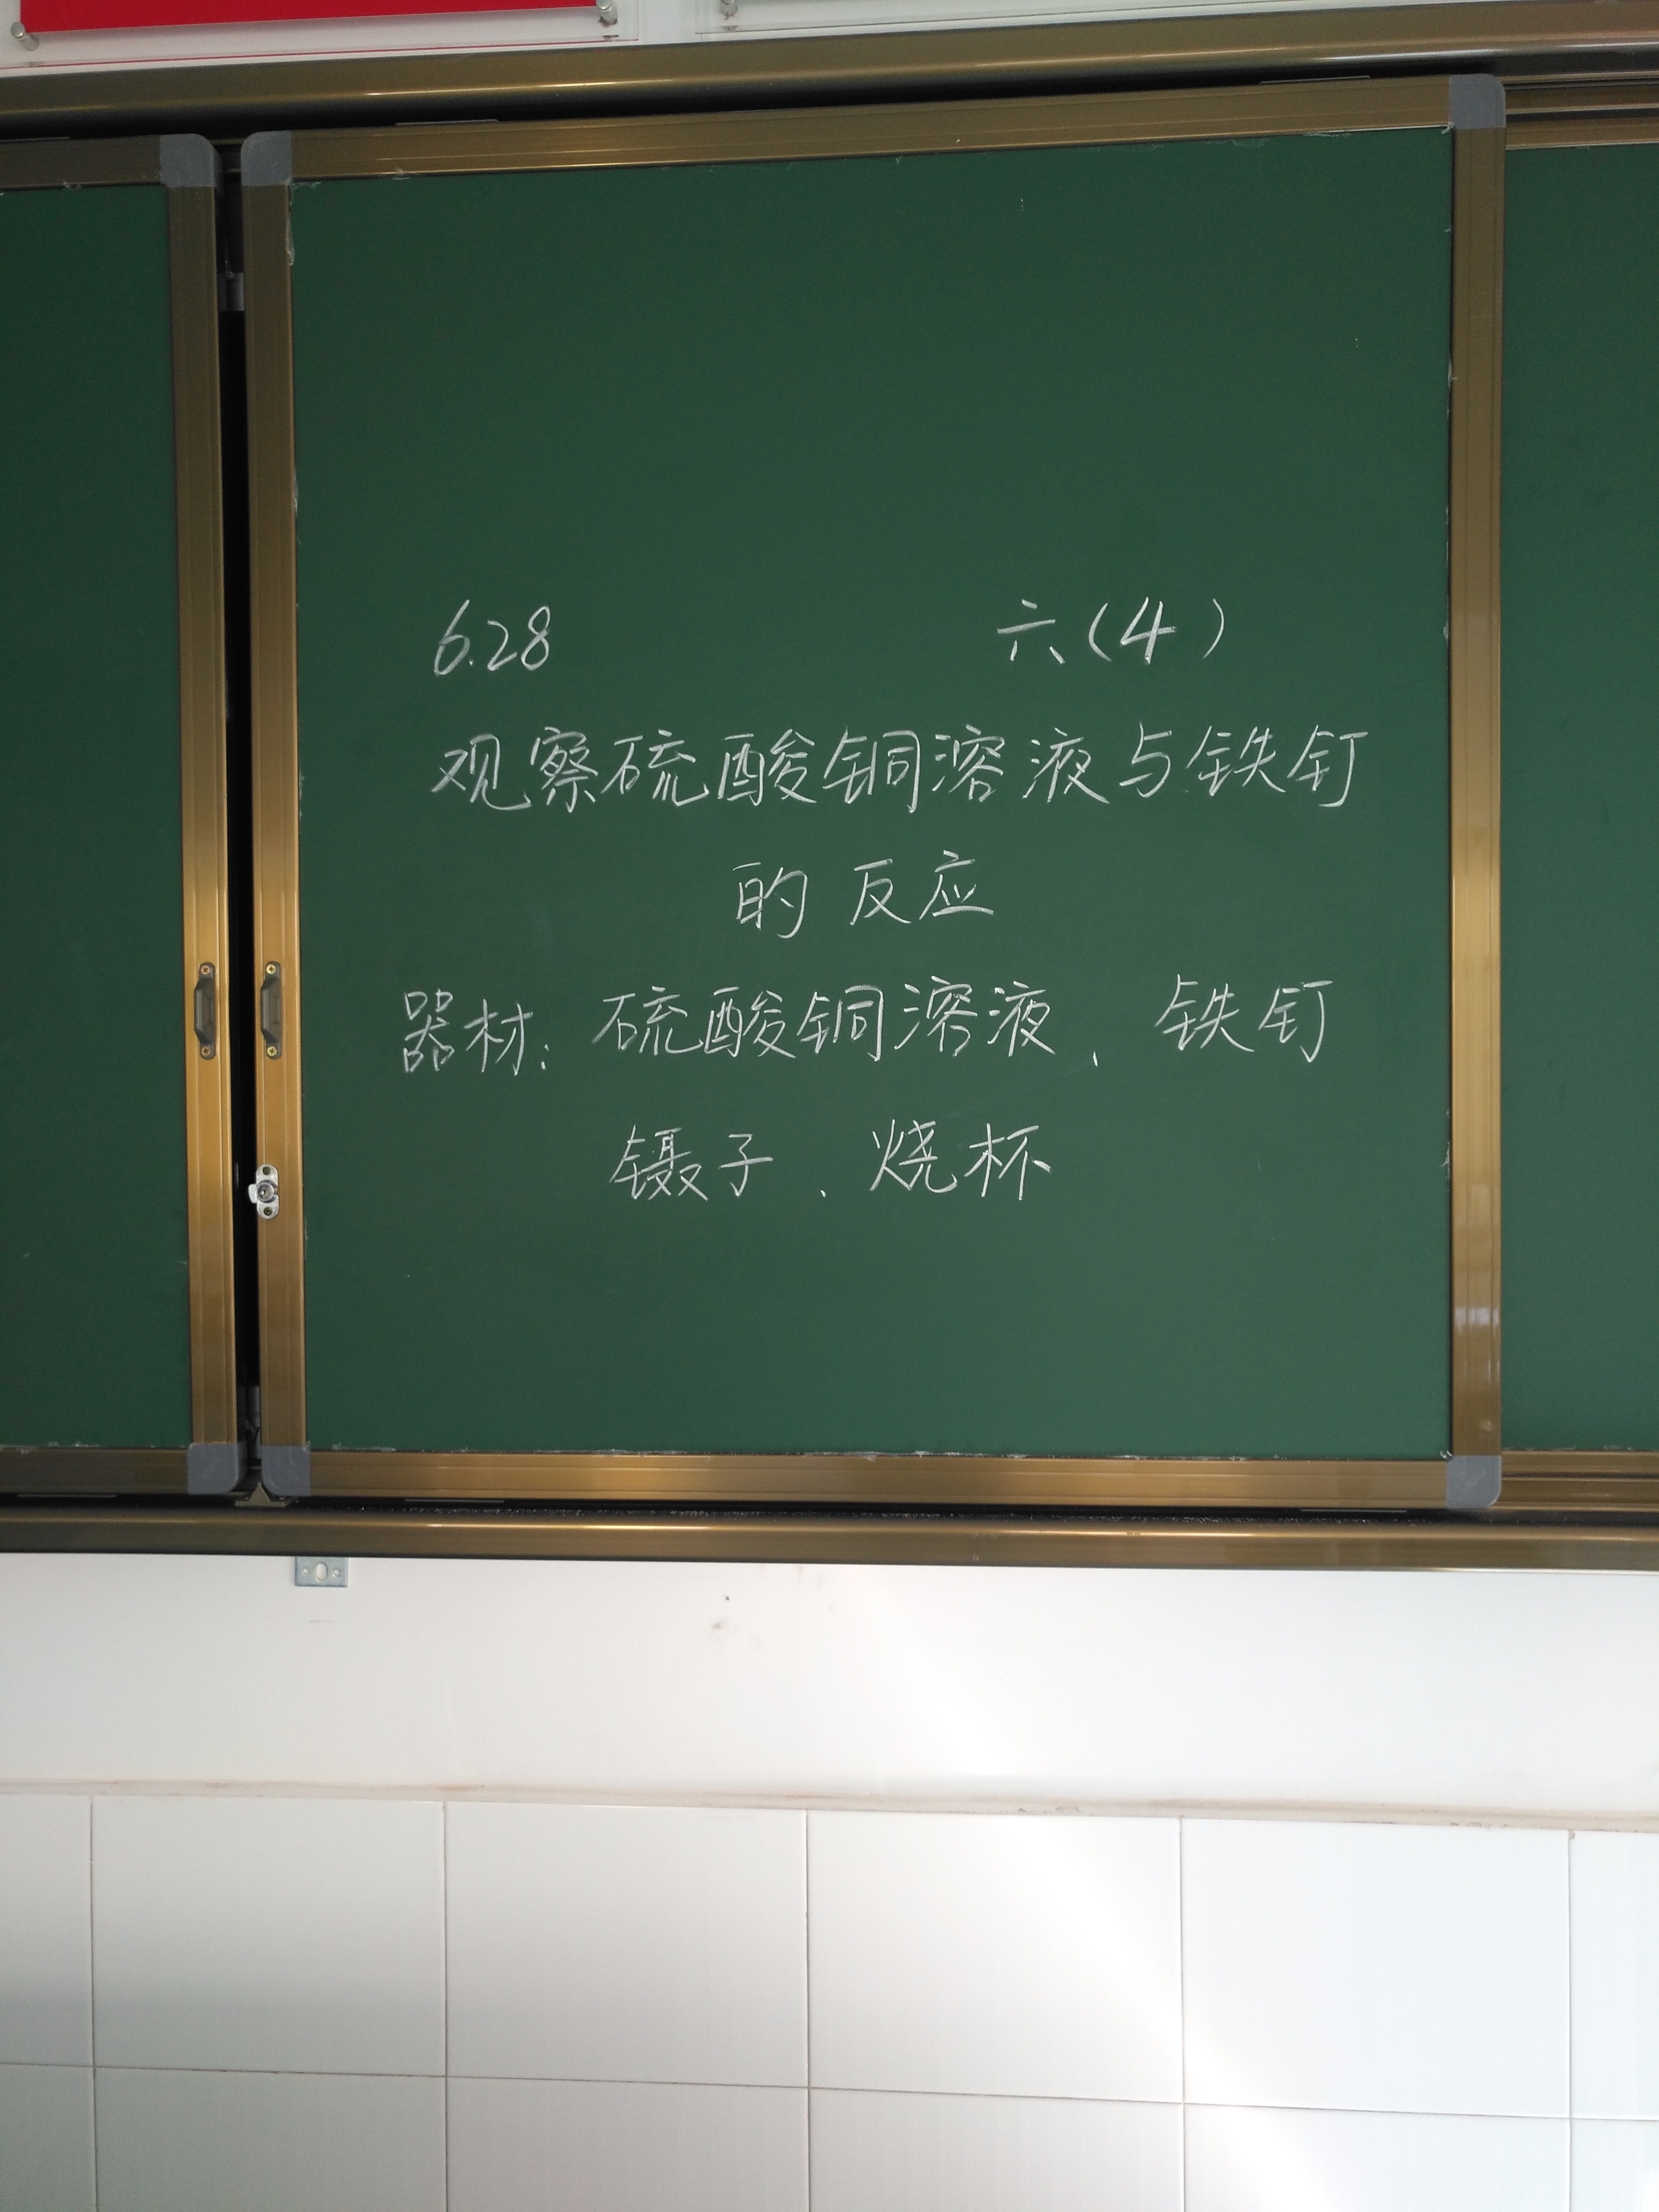 6.28 六(4)
观察硫酸铜溶液与铁钉
的反应
器材：硫酸铜溶液、铁钉
镊子、烧杯